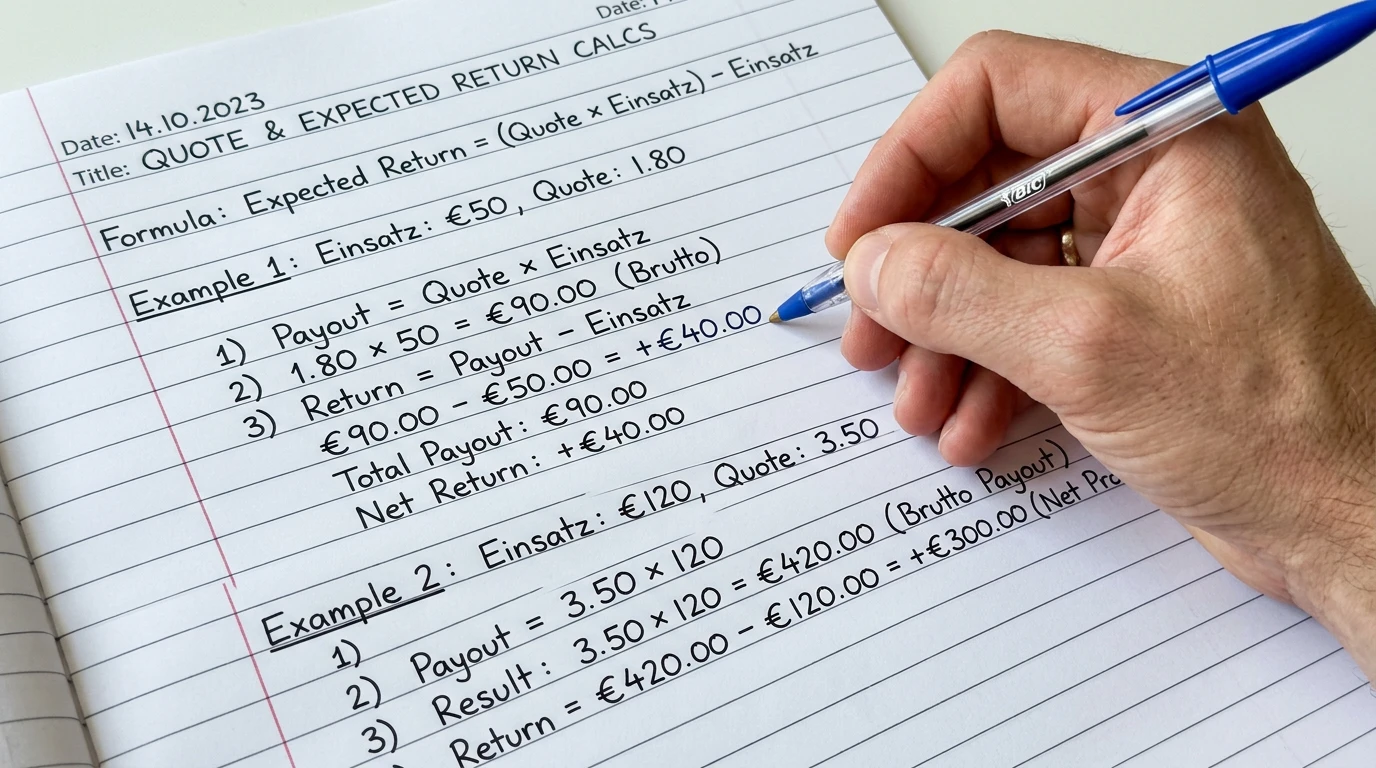 Date:
Date: 14.10.2023
Title: QUOTE & EXPECTED RETURN CALCS
Formula: Expected Return = (Quote x Einsatz) - Einsatz
Example 1: Einsatz: €50, Quote: 1.80
1) Payout = Quote x Einsatz
2) 1.80 x 50 = €90.00 (Brutto)
3) Return = Payout - Einsatz
€90.00 - €50.00 = +€40.00
Total Payout: €90.00
Net Return: +€40.00
Example 2: Einsatz: €120, Quote: 3.50
1)
2) Payout = 3.50 x 120
3) Result: 3.50 x 120 = €420.00 (Brutto Payout)
Return = €420.00 - €120.00 = +€300.00 (Net
BIC